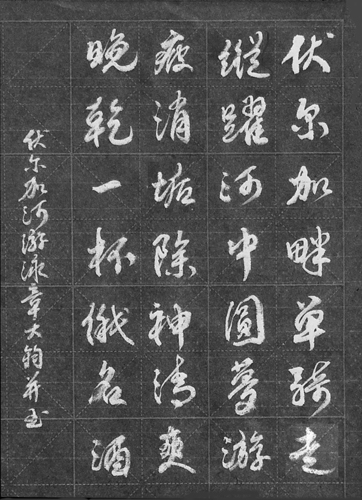 伏尔加畔单骑走
縱躍河中圓夢游
疲消垢除神清爽
晚乾一杯俄名酒
伏尔加河游泳章大鈞并书